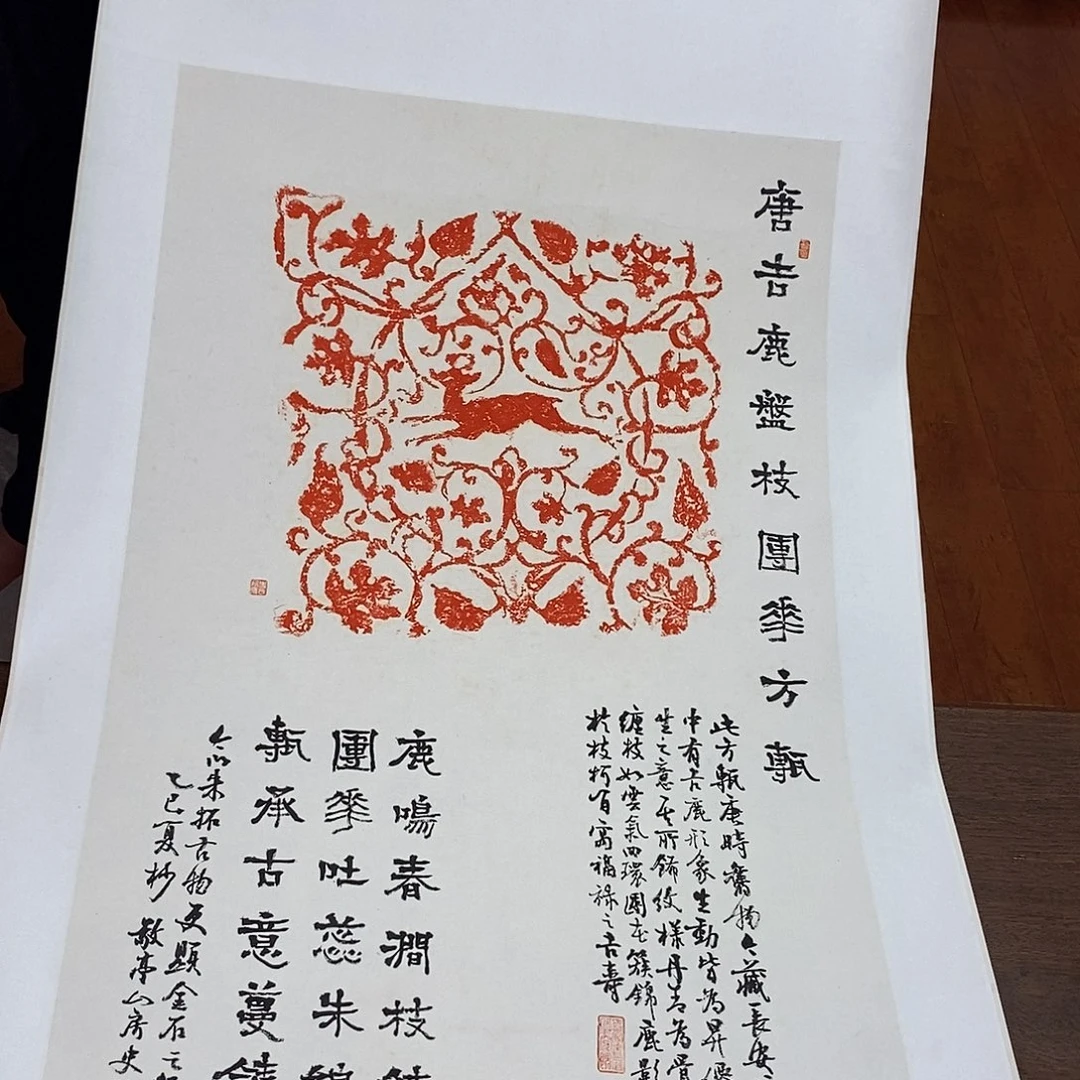 唐吉鹿盤枝團華方甎
此方甎唐時舊物今藏長安
中有吉鹿形象生動皆為昇
生之意至所飾紋樣丹青為骨
纏枝如雲氣回環團花簇錦鹿影
於枝柯有寓福祿之吉壽
鹿鳴春澗枝
團華吐蕊朱
甎承古意蔓
今以朱拓古物更顯金石之
乙巳夏杪敬亭山房史